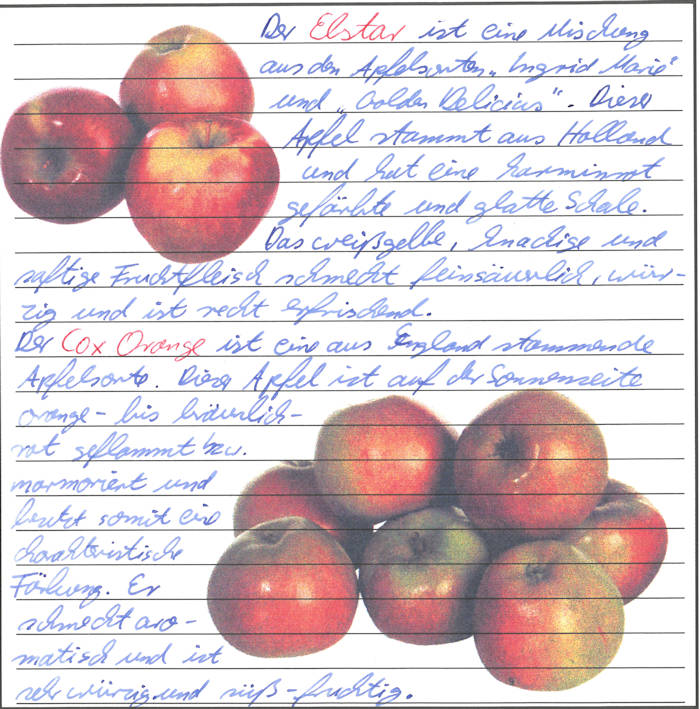 Der Elstar ist eine Mischung
aus den Apfelsorten „Ingrid Marie"
und „Golden Delicius". Dieser
Apfel stammt aus Holland
und hat eine karminrot
gefärbte und glatte Schale.
Das weißgelbe, knackige und
saftige Fruchtfleisch schmeckt feinsäuerlich, wür-
zig und ist recht erfrischend.
Der Cox Orange ist eine aus England stammende
Apfelsorte. Dieser Apfel ist auf der Sonnenseite
orange- bis bräunlich-
rot geflammt bzw.
marmoriert und
besitzt somit eine
charakteristische
Färbung. Er
schmeckt aro-
matisch und ist
sehr würzig und süß-fruchtig.